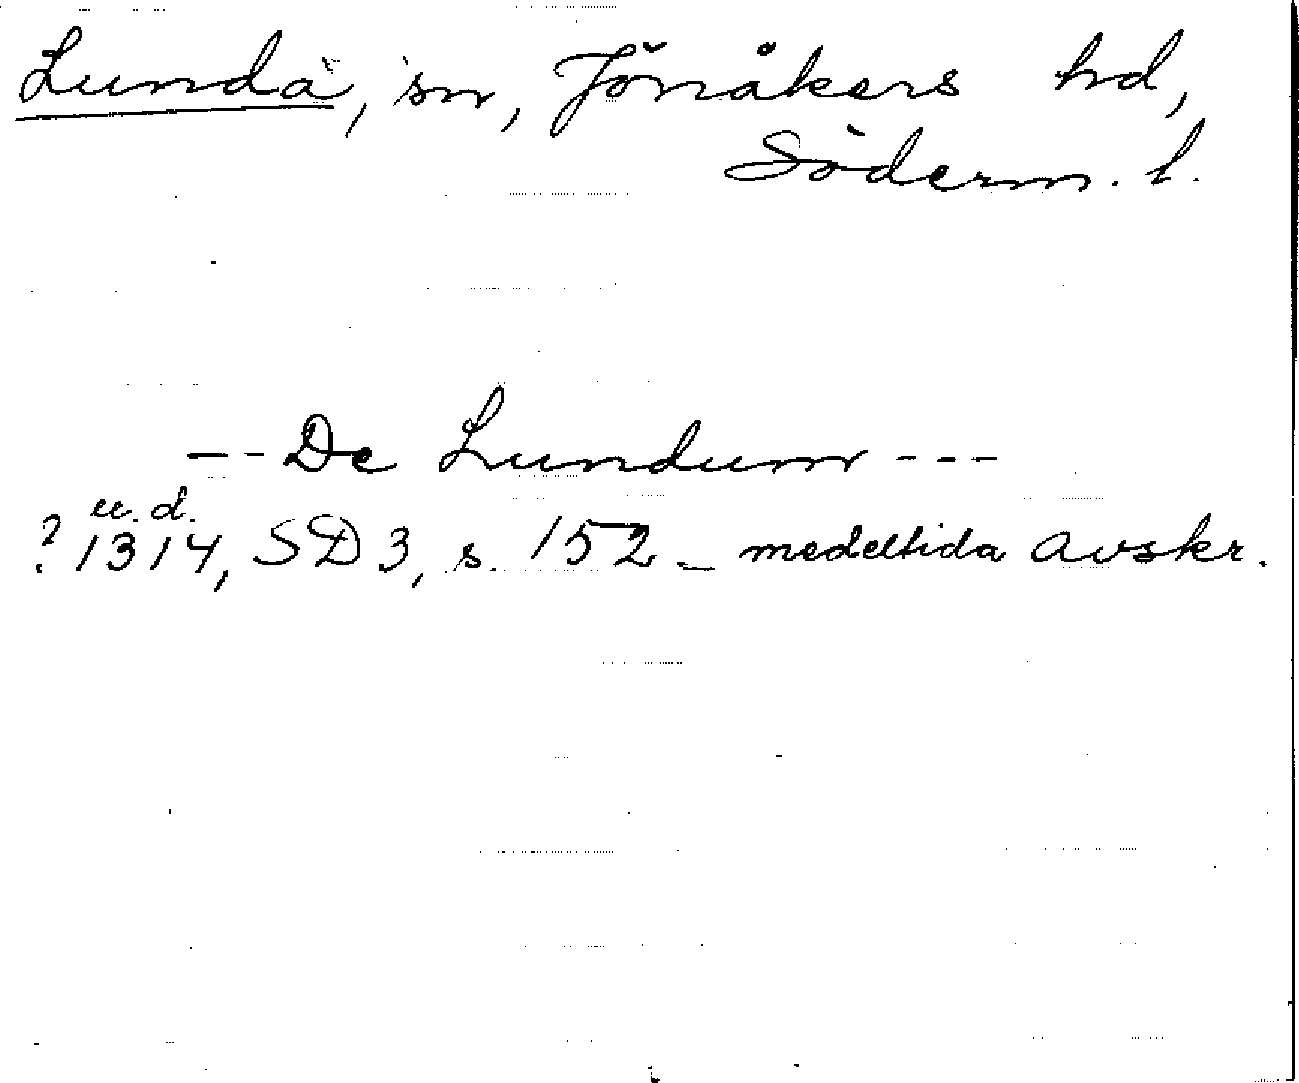 Lunda, sn, Jönåkers hd,
Söderm. l.
-- De Lundum ---
u. d.
? 1314, SD 3, s. 152 - medeltida avskr.